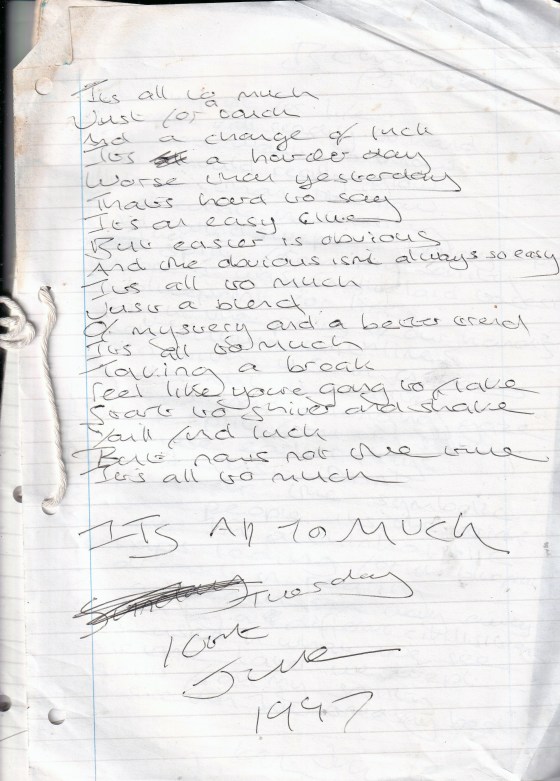 Its all to much
Just for a couch
And a change of luck
Its a harder day
Worse than yesterday
Thats hard to say
Its an easy clue
But easier is obvious
And the obvious isnt always so easy
Its all to much
Just a blend
Of mystery and a better
Its all to much
Taking a break
Feel like youre going to flake
Start to shiver and shake
You'll find luck
But nows not the time
It's all to much
ITS All TO MUCH
Sunday Tuesday
10th
June
1997